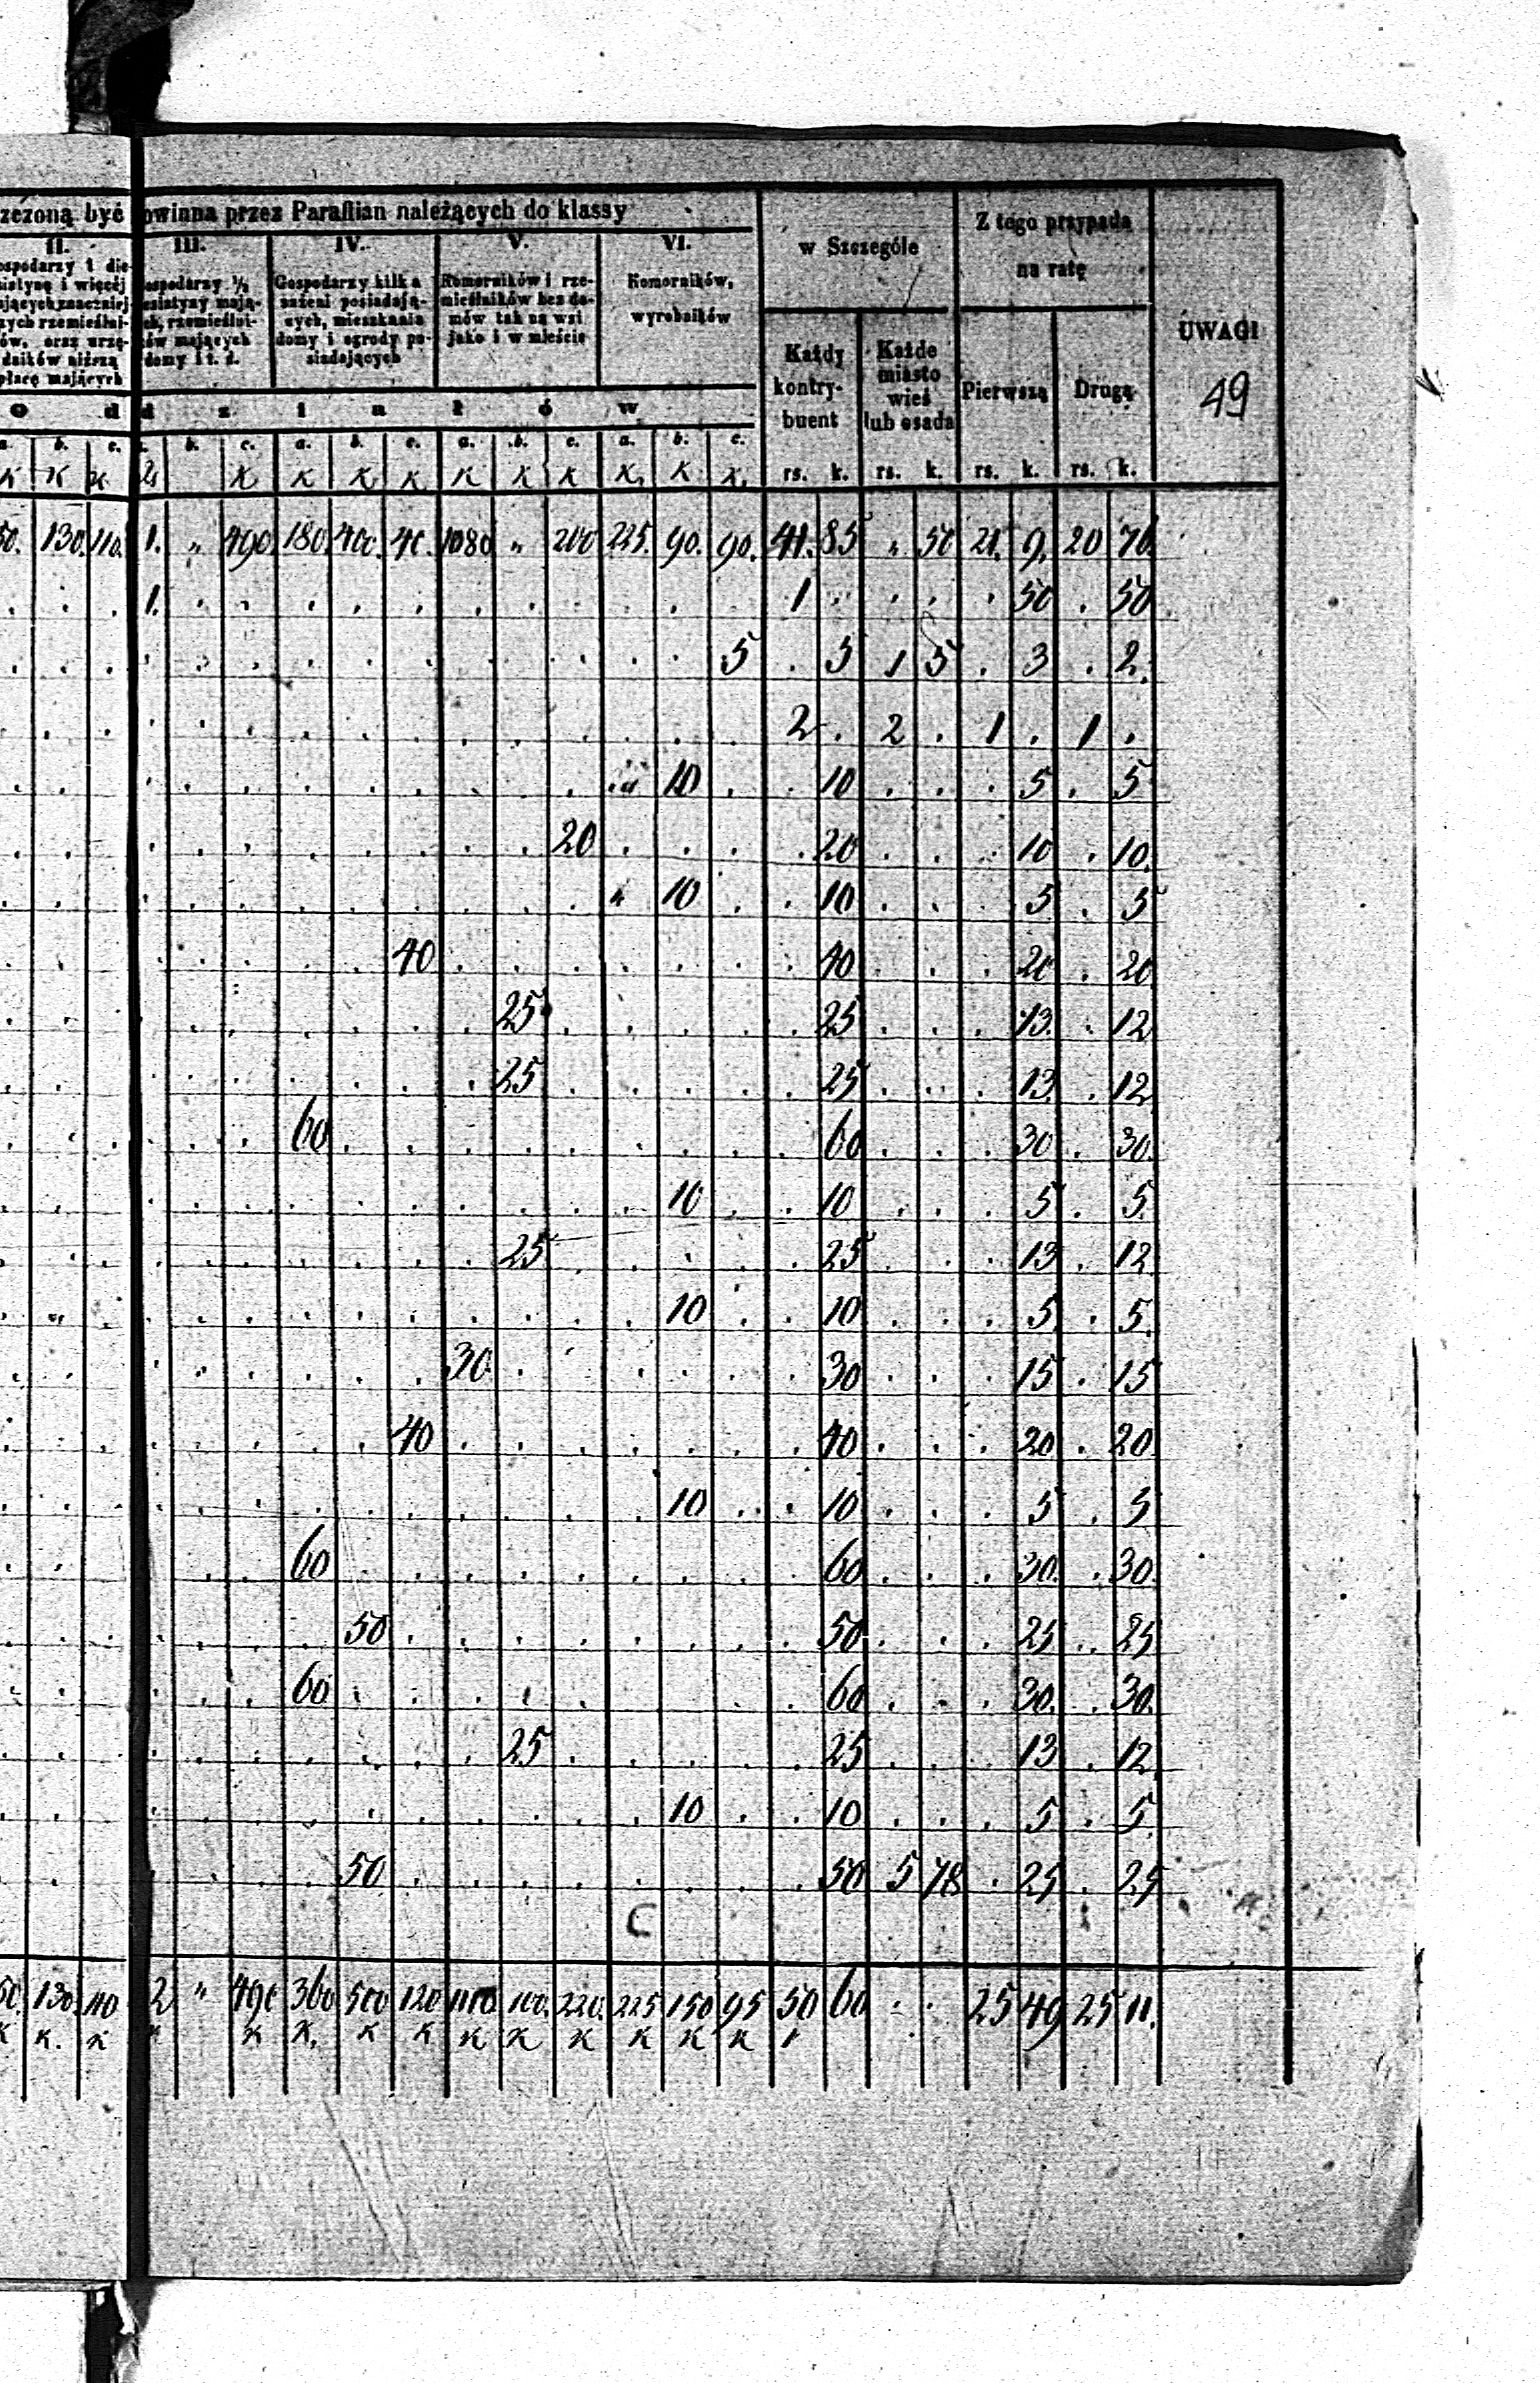 zczoną być owinna przez Parafiian należących do klassy
w Szczególe
Z tego przypada
na ratę
UWAGI
II. III. IV. V. VI.
ospodarzy 1 die-
siatynę i więcéj
ających znaczniéj-
zych rzemieślni-
ów, oraz urzę-
dników niższą
płacę mających
ospodarzy ½
esiatyny mają-
ch, rzemieślni-
ów mających
domy i t. d.
Gospodarzy kilka
sażeni posiadają-
cych, mieszkania
domy i ogrody po-
siadających
Komorników i rze-
mieślników bez do-
mów tak na wsi
jako i w mieście
Komorników,
wyrobników
Każdy
kontry-
buent
Każde
miasto
wieś
lub osada
Pierwszą
Drugą
49
o d d z i a ł ó w
a. b. c. b. c. a. b. c. a. b. c. a. b. c.
K K K K K K K K K K K K K rs. k. rs. k. rs. k. rs. k.
50. 130. 110. 1. „ 490 180. 400. 40. 1080 „ 200 225. 90. 90. 41. 85 „ 50 21. 9. 20 76.
1. 1 . . . . 50 . 50
5 . 5 1 5 . 3 . 2.
2 . 2 . 1 . 1 .
„ 10 . . 10 . . . 5 . 5
20 . . . . 20 . . . 10 . 10.
„ 10 . . 10 . . . 5 . 5
40 . . . . . . . 40 . . . 20 . 20
25 . . . . . 25 . . . 13. . 12
25 . . . . . 25 . . . 13 . 12
60 . . . . . . . . . 60 . . . 30 . 30.
10 . . 10 . . . 5 . 5.
25 . . . . . 25 . . . 13 . 12
10 . . 10 . . . 5 . 5.
30 . . . . . . 30 . . . 15 . 15
40 . . . . . . . 40 . . . 20 . 20
10 . . 10 . . . 5 . 5
60 . . . . . . . . . 60 . . . 30. . 30.
50 . . . . . . . . 50 . . . 25 . 25
60 . . . . . . . . . 60 . . . 30. . 30.
25 . . . . . 25 . . . 13 . 12
10 . . 10 . . . 5 . 5.
50 . . . . . . . . 50 5 78 . 25 . 25
C
50. 130 110 2 „ 490 360 500 120 1110 100. 220. 225 150 95 50 60 . . 25 49 25 11.
K K. K K K. K K K K K K K K